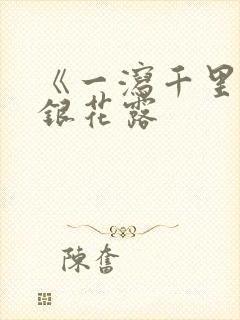 《一瀉千里
銀花露
陳奮